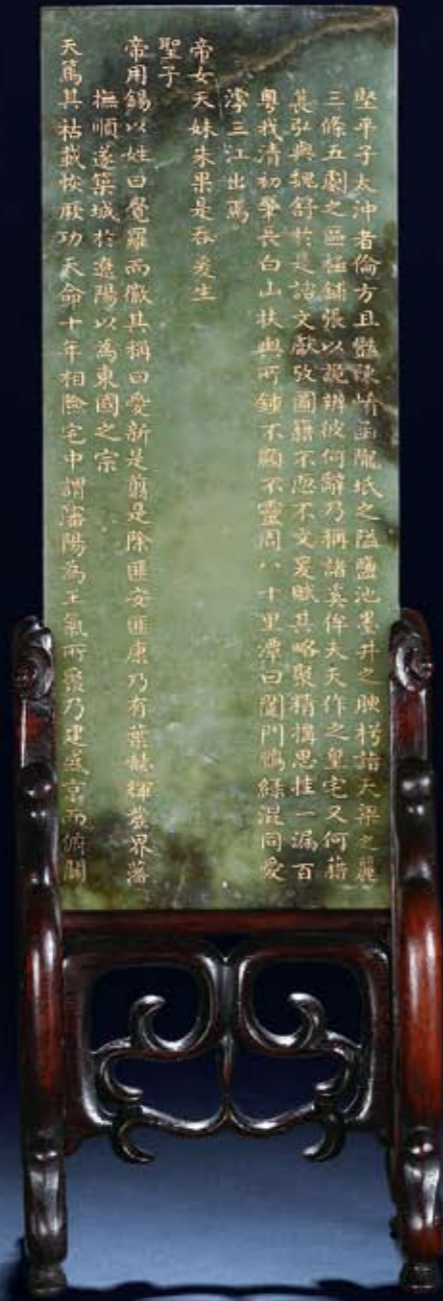 堅平子太沖者倫方且豔陳崤函隴坻之隘鹽池墨井之腴枍詣天梁之麗
三條五劇之區極鋪張以詭辨彼何辭乃稱諸奚侔夫天作之皇宅又何藉
萇弘與魏舒於是諮文獻攷圖籍不恧不文爰賦其略聚精搆思挂一漏百
粵我清初肇長白山扶輿所鍾不顯不靈周八十里潭曰闥門鴨綠混同愛
滹三江出焉
帝女天妹朱果是吞爰生
聖子
帝用錫以姓曰覺羅而徽其稱曰愛新是翦是除匪安匪康乃有葉赫輝發界藩
撫順遂築城於遼陽以為東國之宗
天篤其祜載恢厥功天命十年相險宅中謂瀋陽為王氣所聚乃建盛宮而俯闢